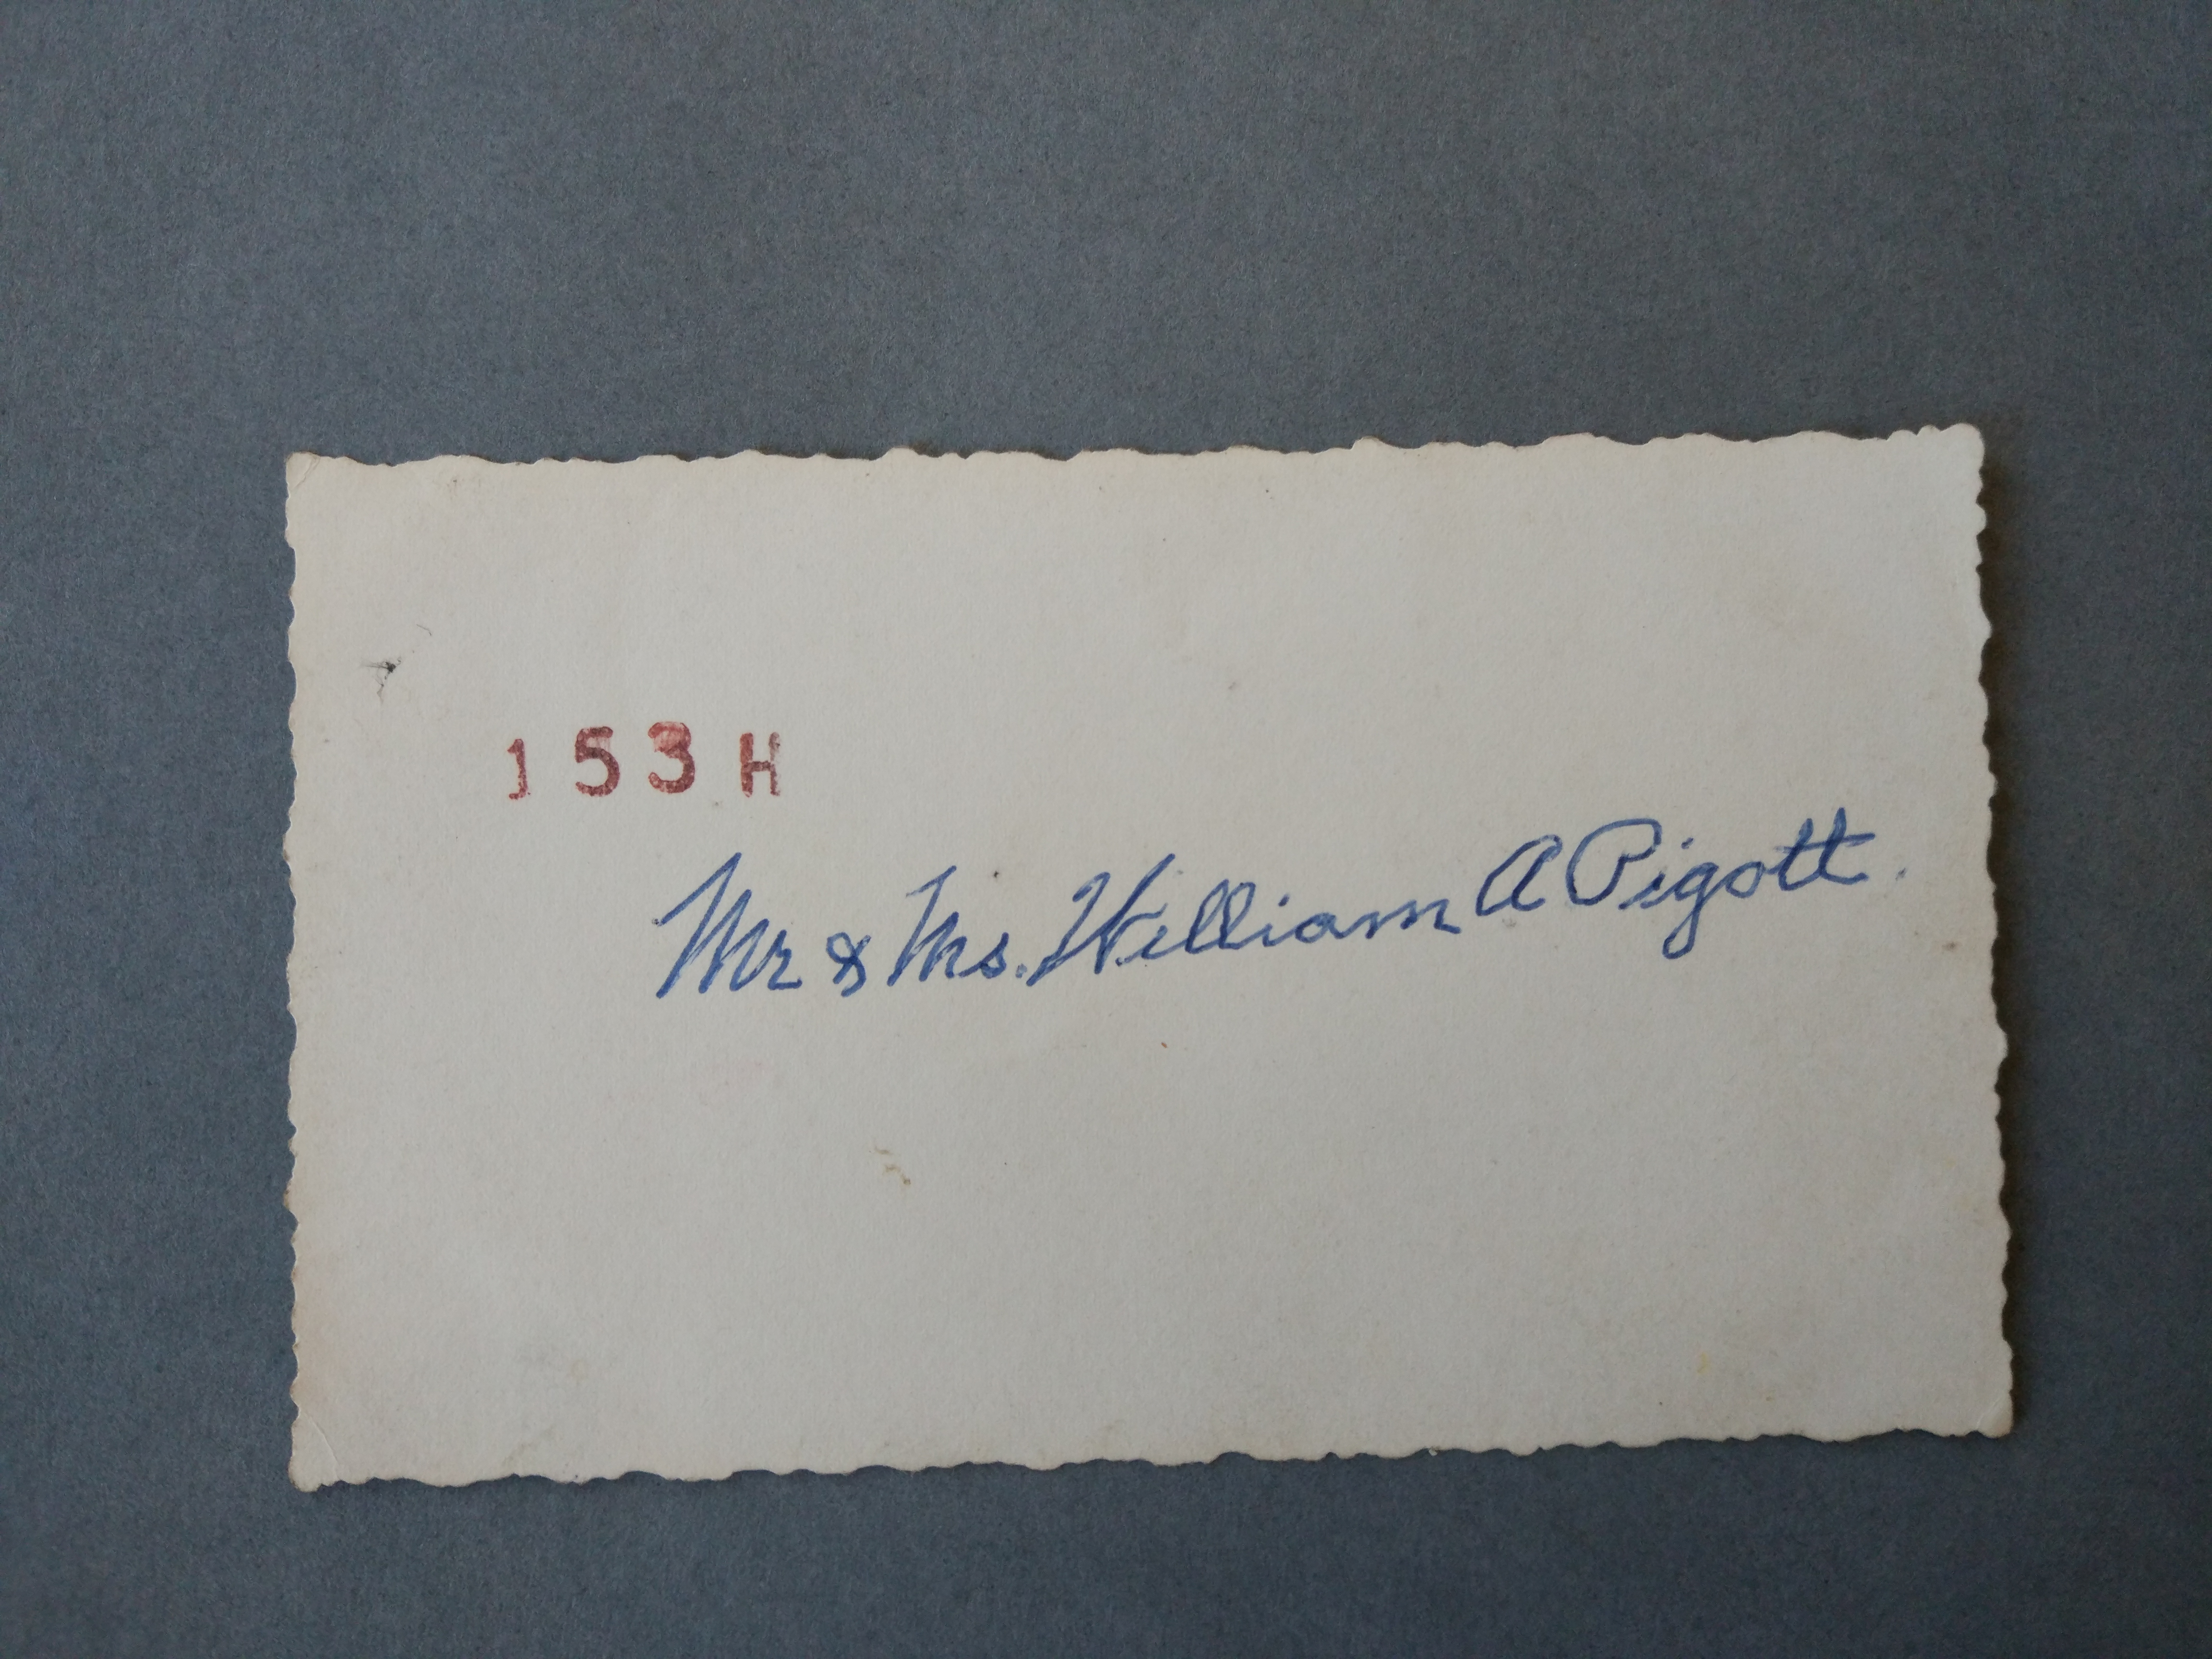 153H
Mr & Mrs. William A Pigott.